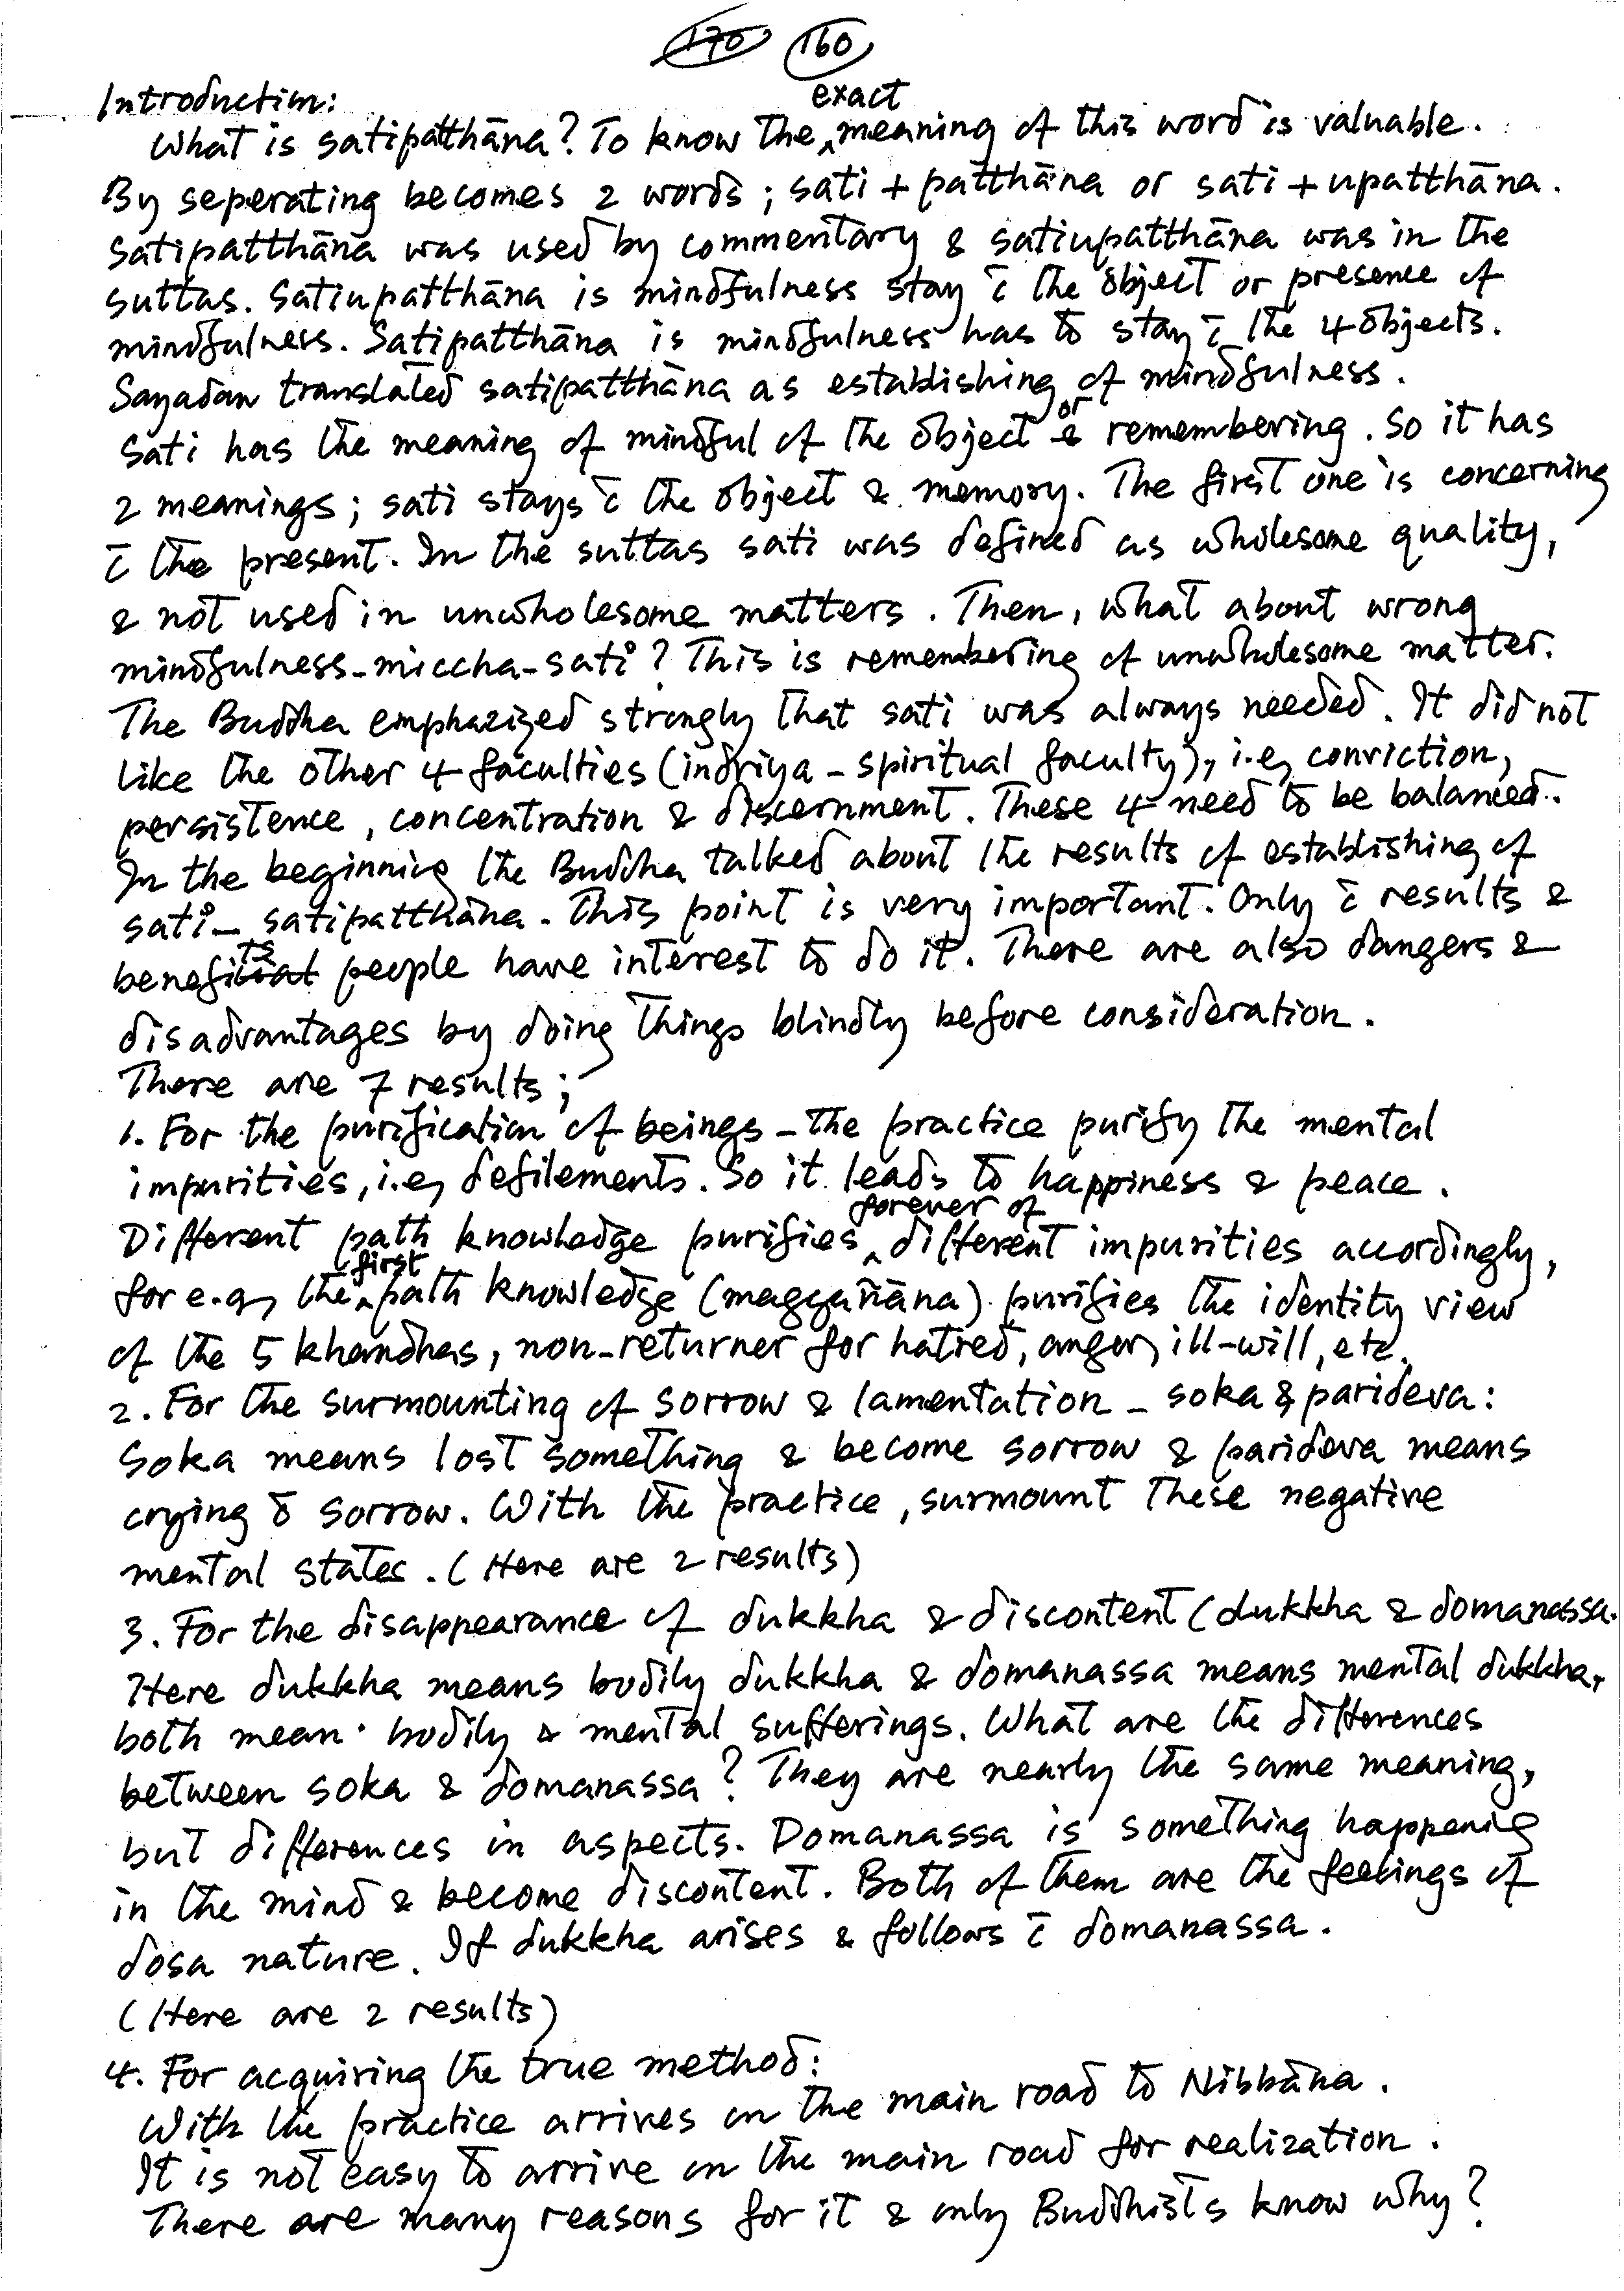 170 160
Introduction:
What is satipatthāna? To know the exact meaning of this word is valuable.
By seperating becomes 2 words; sati + patthāna or sati + upatthāna.
Satipatthāna was used by commentary & satiupatthāna was in the
suttas. Satiupatthāna is mindfulness stay c̄ the object or presence of
mindfulness. Satipatthāna is mindfulness has to stay c̄ the 4 objects.
Sayadaw translated satipatthāna as establishing of mindfulness.
Sati has the meaning of mindful of the object or remembering. So it has
2 meanings; sati stays c̄ the object & memory. The first one is concerning
c̄ the present. In the suttas sati was defined as wholesome quality,
& not used in unwholesome matters. Then, what about wrong
mindfulness-miccha-sati? This is remembering of unwholesome matter.
The Buddha emphazized strongly that sati was always needed. It did not
like the other 4 faculties (indriya - spiritual faculty), i.e, conviction,
persistence, concentration & discernment. These 4 need to be balanced.
In the beginning the Buddha talked about the results of establishing of
sati - satipatthāna. This point is very important. Only c̄ results &
benefits people have interest to do it. There are also dangers &
disadvantages by doing things blindly before consideration.
There are 7 results;
1. For the purification of beings - the practice purify the mental
impurities, i.e, defilements. So it leads to happiness & peace.
Different path knowledge purifies forever of different impurities accordingly,
for e.g, the first path knowledge (maggañāna) purifies the identity view
of the 5 khandhas, non-returner for hatred, anger, ill-will, etc.
2. For the surmounting of sorrow & lamentation - soka & parideva:
Soka means lost something & become sorrow & parideva means
crying c̄ sorrow. With the practice, surmount these negative
mental states. (Here are 2 results)
3. For the disappearance of dukkha & discontent (dukkha & domanassa.
Here dukkha means bodily dukkha & domanassa means mental dukkha,
both mean bodily & mental sufferings. What are the differences
between soka & domanassa? They are nearly the same meaning,
but differences in aspects. Domanassa is something happening
in the mind & become discontent. Both of them are the feelings of
dosa nature. If dukkha arises & follows c̄ domanassa.
(Here are 2 results)
4. For acquiring the true method:
With the practice arrives on the main road to Nibbāna.
It is not easy to arrive on the main road for realization.
There are many reasons for it & only Buddhists know why?